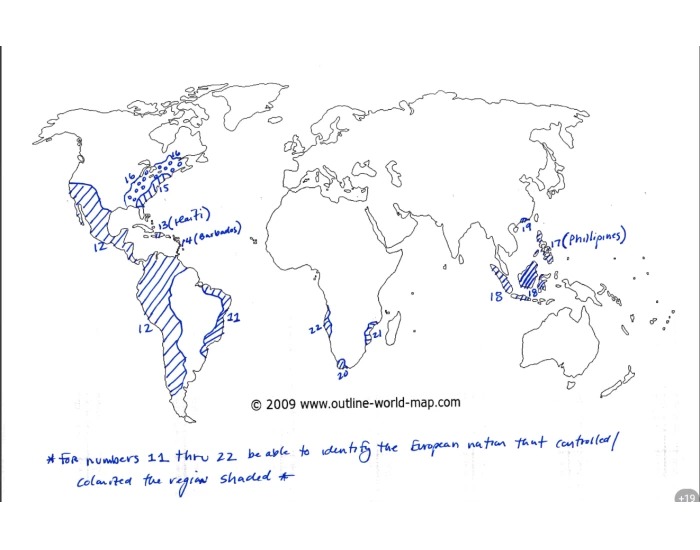 16
16
15
13(Haiti)
14(Barbados)
12
19
17(Phillipines)
18
18
12
11
22
21
20
© 2009 www.outline-world-map.com
* For numbers 11 thru 22 be able to identify the European nation that controlled/
colonized the region shaded *
+19